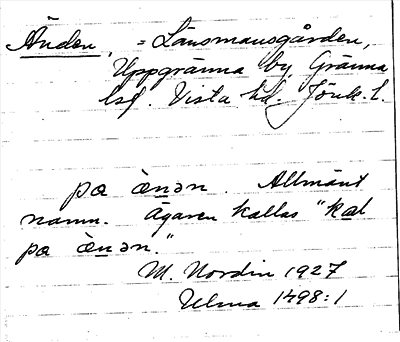 Änden, = Länsmansgården,
Uppgränna by, Gränna
lsf. Vista hd. Jönk. l.
pa ànən. Allmänt
namn. Ägaren kallas "kal
pa ànən."
M. Nordin 1927
Ulma 1498:1